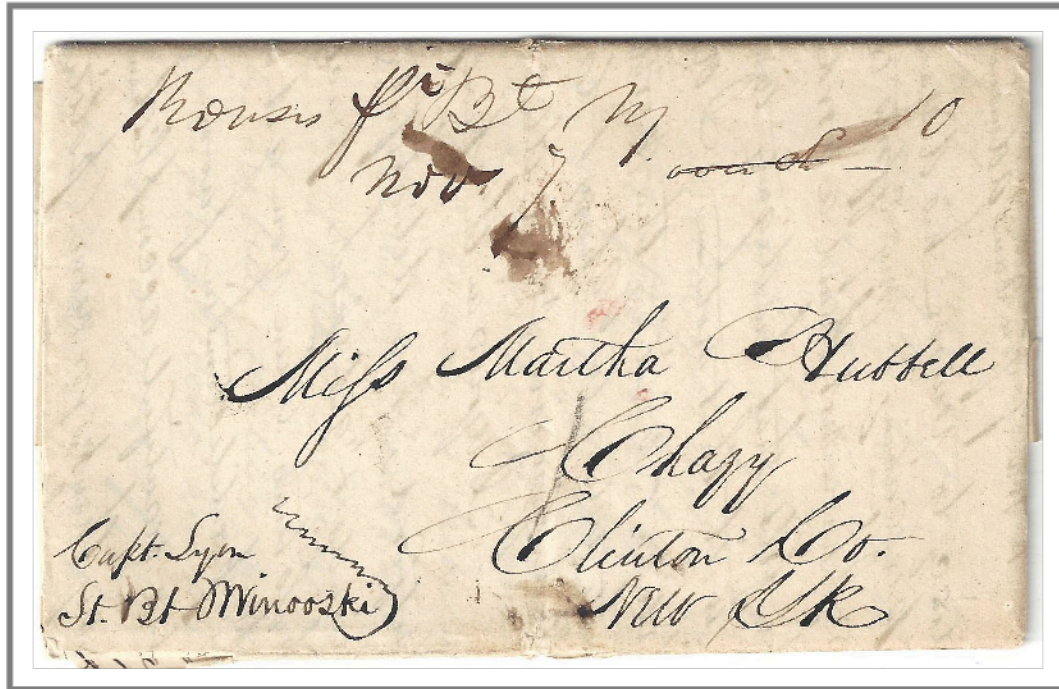 Rouses Pt N Y 10
Nov 7
Miss Martha Hubbell
Chazy
Clinton Co.
New Yk
Capt. Lyon
St. Bt Winooski